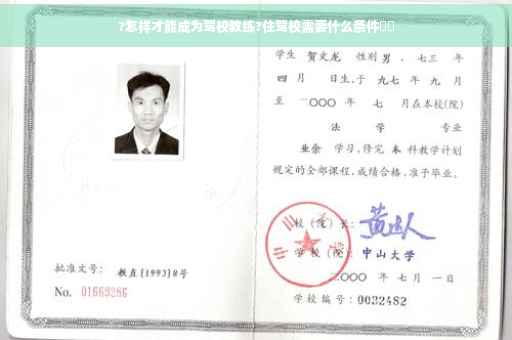 ?怎样才能成为驾校教练?住驾校需要什么条件
学生 贺文龙 性别 男 、七三 年
四 月 日生,于 九七 年 九 月
至 二〇〇〇 年 七 月在本校(院)
法 学 专业
业余 学习,修完 本 科教学计划
规定的全部课程,成绩合格,准予毕业。
校(院)长:
学 校(院): 中山大学
二〇〇〇 年 七 月 一 日
学校编号: 0032482
批准文号: 教直[1993]8号
No. 01669286